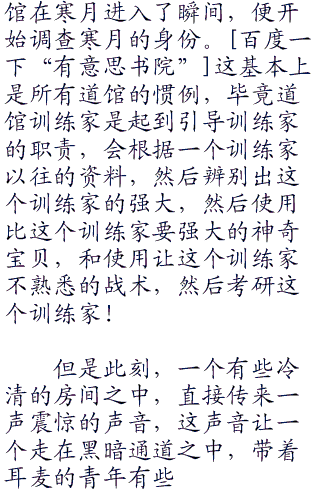 馆在寒月进入了瞬间，便开
始调查寒月的身份。[百度一
下“有意思书院”]这基本上
是所有道馆的惯例，毕竟道
馆训练家是起到引导训练家
的职责，会根据一个训练家
以往的资料，然后辨别出这
个训练家的强大，然后使用
比这个训练家要强大的神奇
宝贝，和使用让这个训练家
不熟悉的战术，然后考研这
个训练家！
但是此刻，一个有些冷
清的房间之中，直接传来一
声震惊的声音，这声音让一
个走在黑暗通道之中，带着
耳麦的青年有些